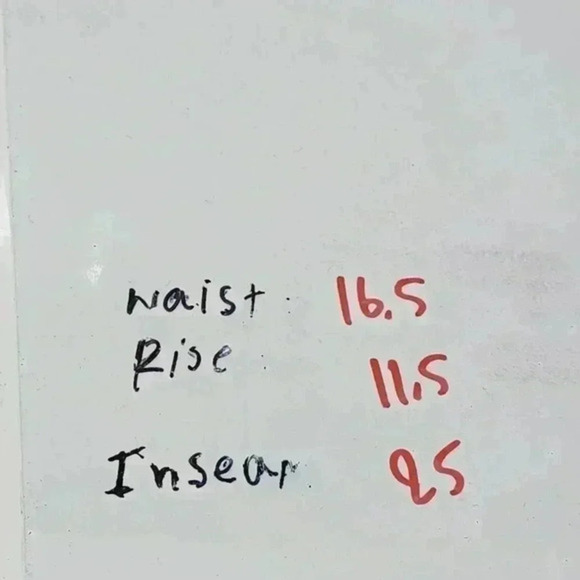 waist 16.5
Rise 11.5
Insear 25